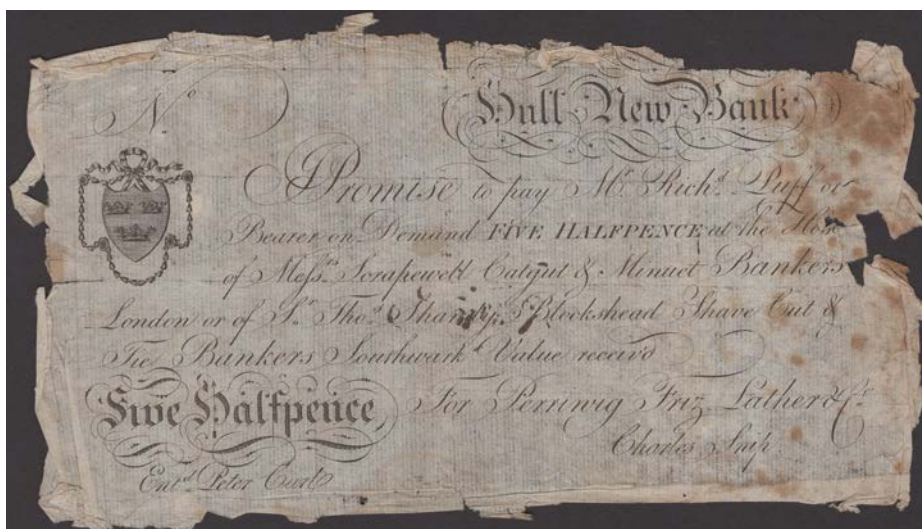 Hull New Bank
No
I Promise to pay Mr. Richd. Puff or
Bearer on Demand FIVE HALFPENCE at the
of Messrs Scrapewell Catgut & Minuet Bankers
London or of Sr. Thos. Blockshead Shave Cut &
Tie Bankers Southwark Value receivd
Five Halfpence
For Perriwig Friz Lather & Co.
Charles Snip
Entd. Peter Curl